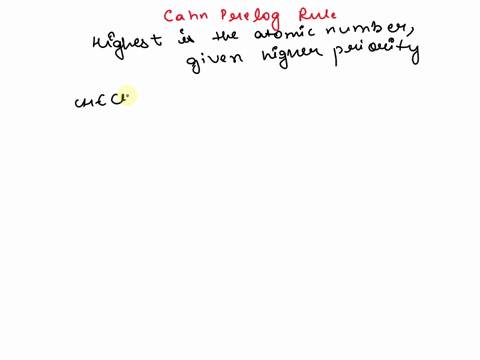 Cahn Prelog Rule
Highest is the atomic number,
given higher priority